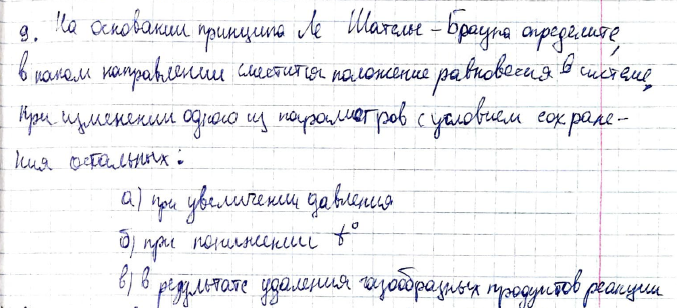 9. На основании принципа Ле Шателье-Брауна определите,
в каком направлении сместится положение равновесия в системе,
при изменении одного из параметров с условием сохране-
ния остальных:
а) при увеличении давления
б) при понижении t°
в) в результате удаления газообразных продуктов реакции